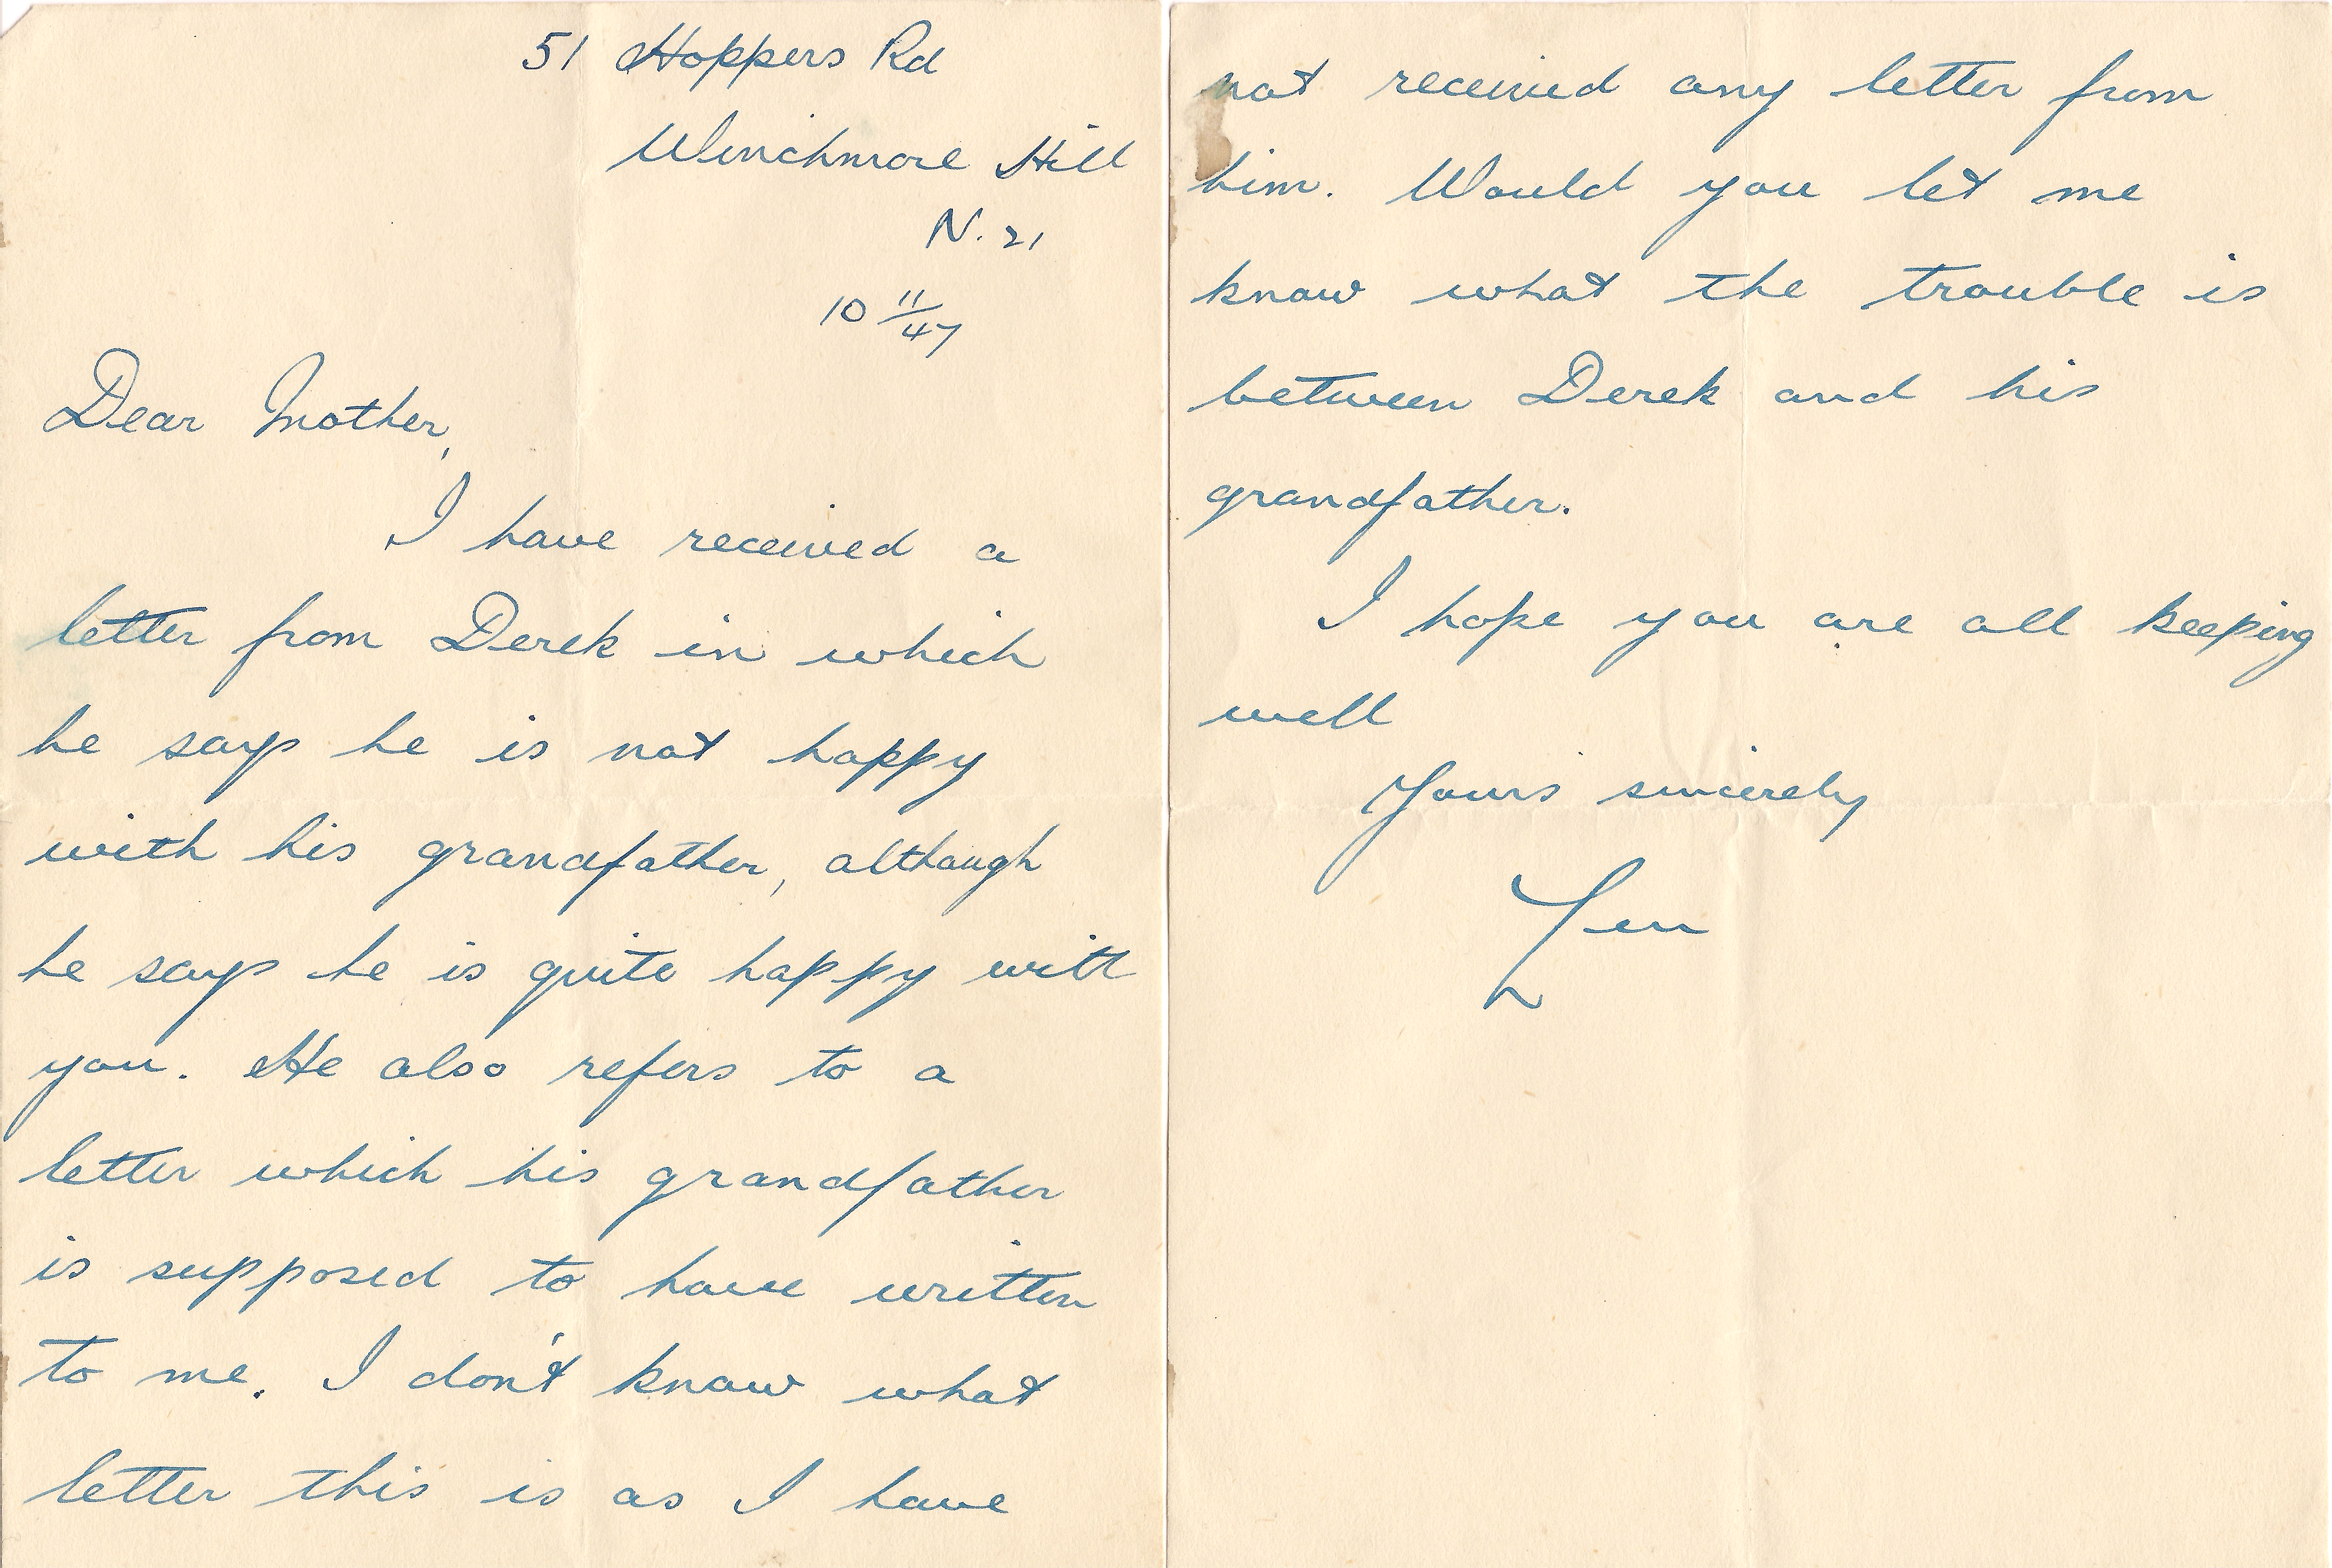 51 Hoppers Rd
Winchmore Hill
N. 21
10 11/47
Dear Mother,
I have received a
letter from Derek in which
he says he is not happy
with his grandfather, although
he says he is quite happy with
you. He also refers to a
letter which his grandfather
is supposed to have written
to me. I don't know what
letter this is as I have
not received any letter from
him. Would you let me
know what the trouble is
between Derek and his
grandfather.
I hope you are all keeping
well
Yours sincerely
Len